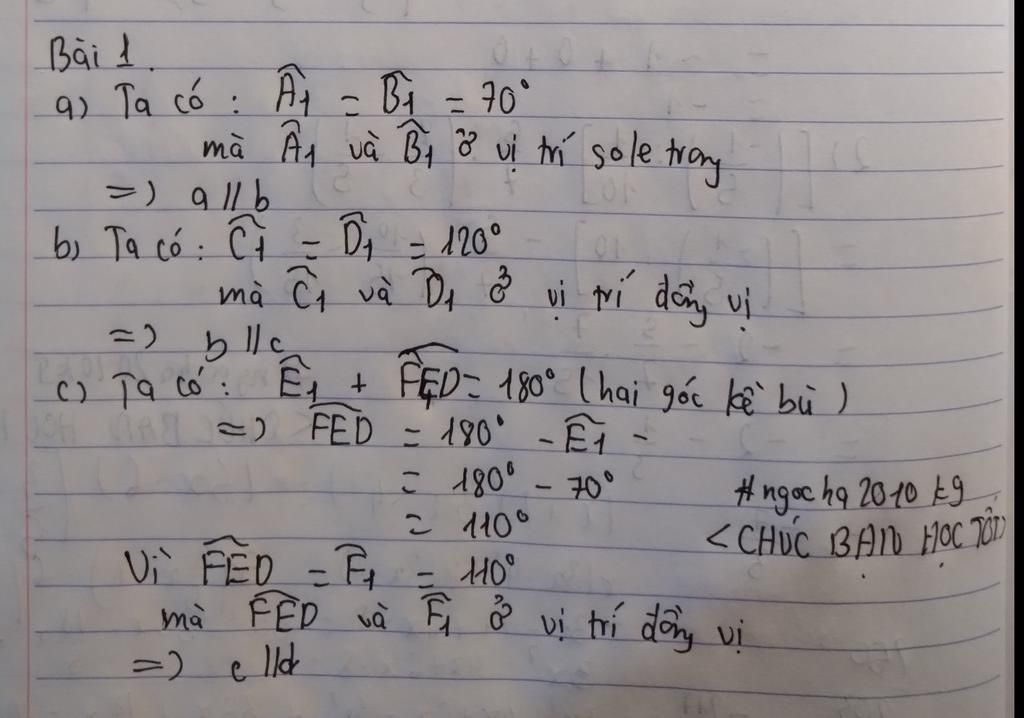 Bài 1.
a) Ta có : Â1 = B̂1 = 70°
mà Â1 và B̂1 ở vị trí sole trong
=> a // b
b) Ta có : Ĉ1 = D̂1 = 120°
mà Ĉ1 và D̂1 ở vị trí đồng vị
=> b // c
c) Ta có : Ê1 + FED = 180° (hai góc kề bù)
=> FED = 180° - Ê1 -
= 180° - 70°
= 110°
#ngocha2010kg
<CHÚC BẠN HỌC TỐT>
Vì FED = F̂1 = 110°
mà FED và F̂1 ở vị trí đồng vị
=> c // d